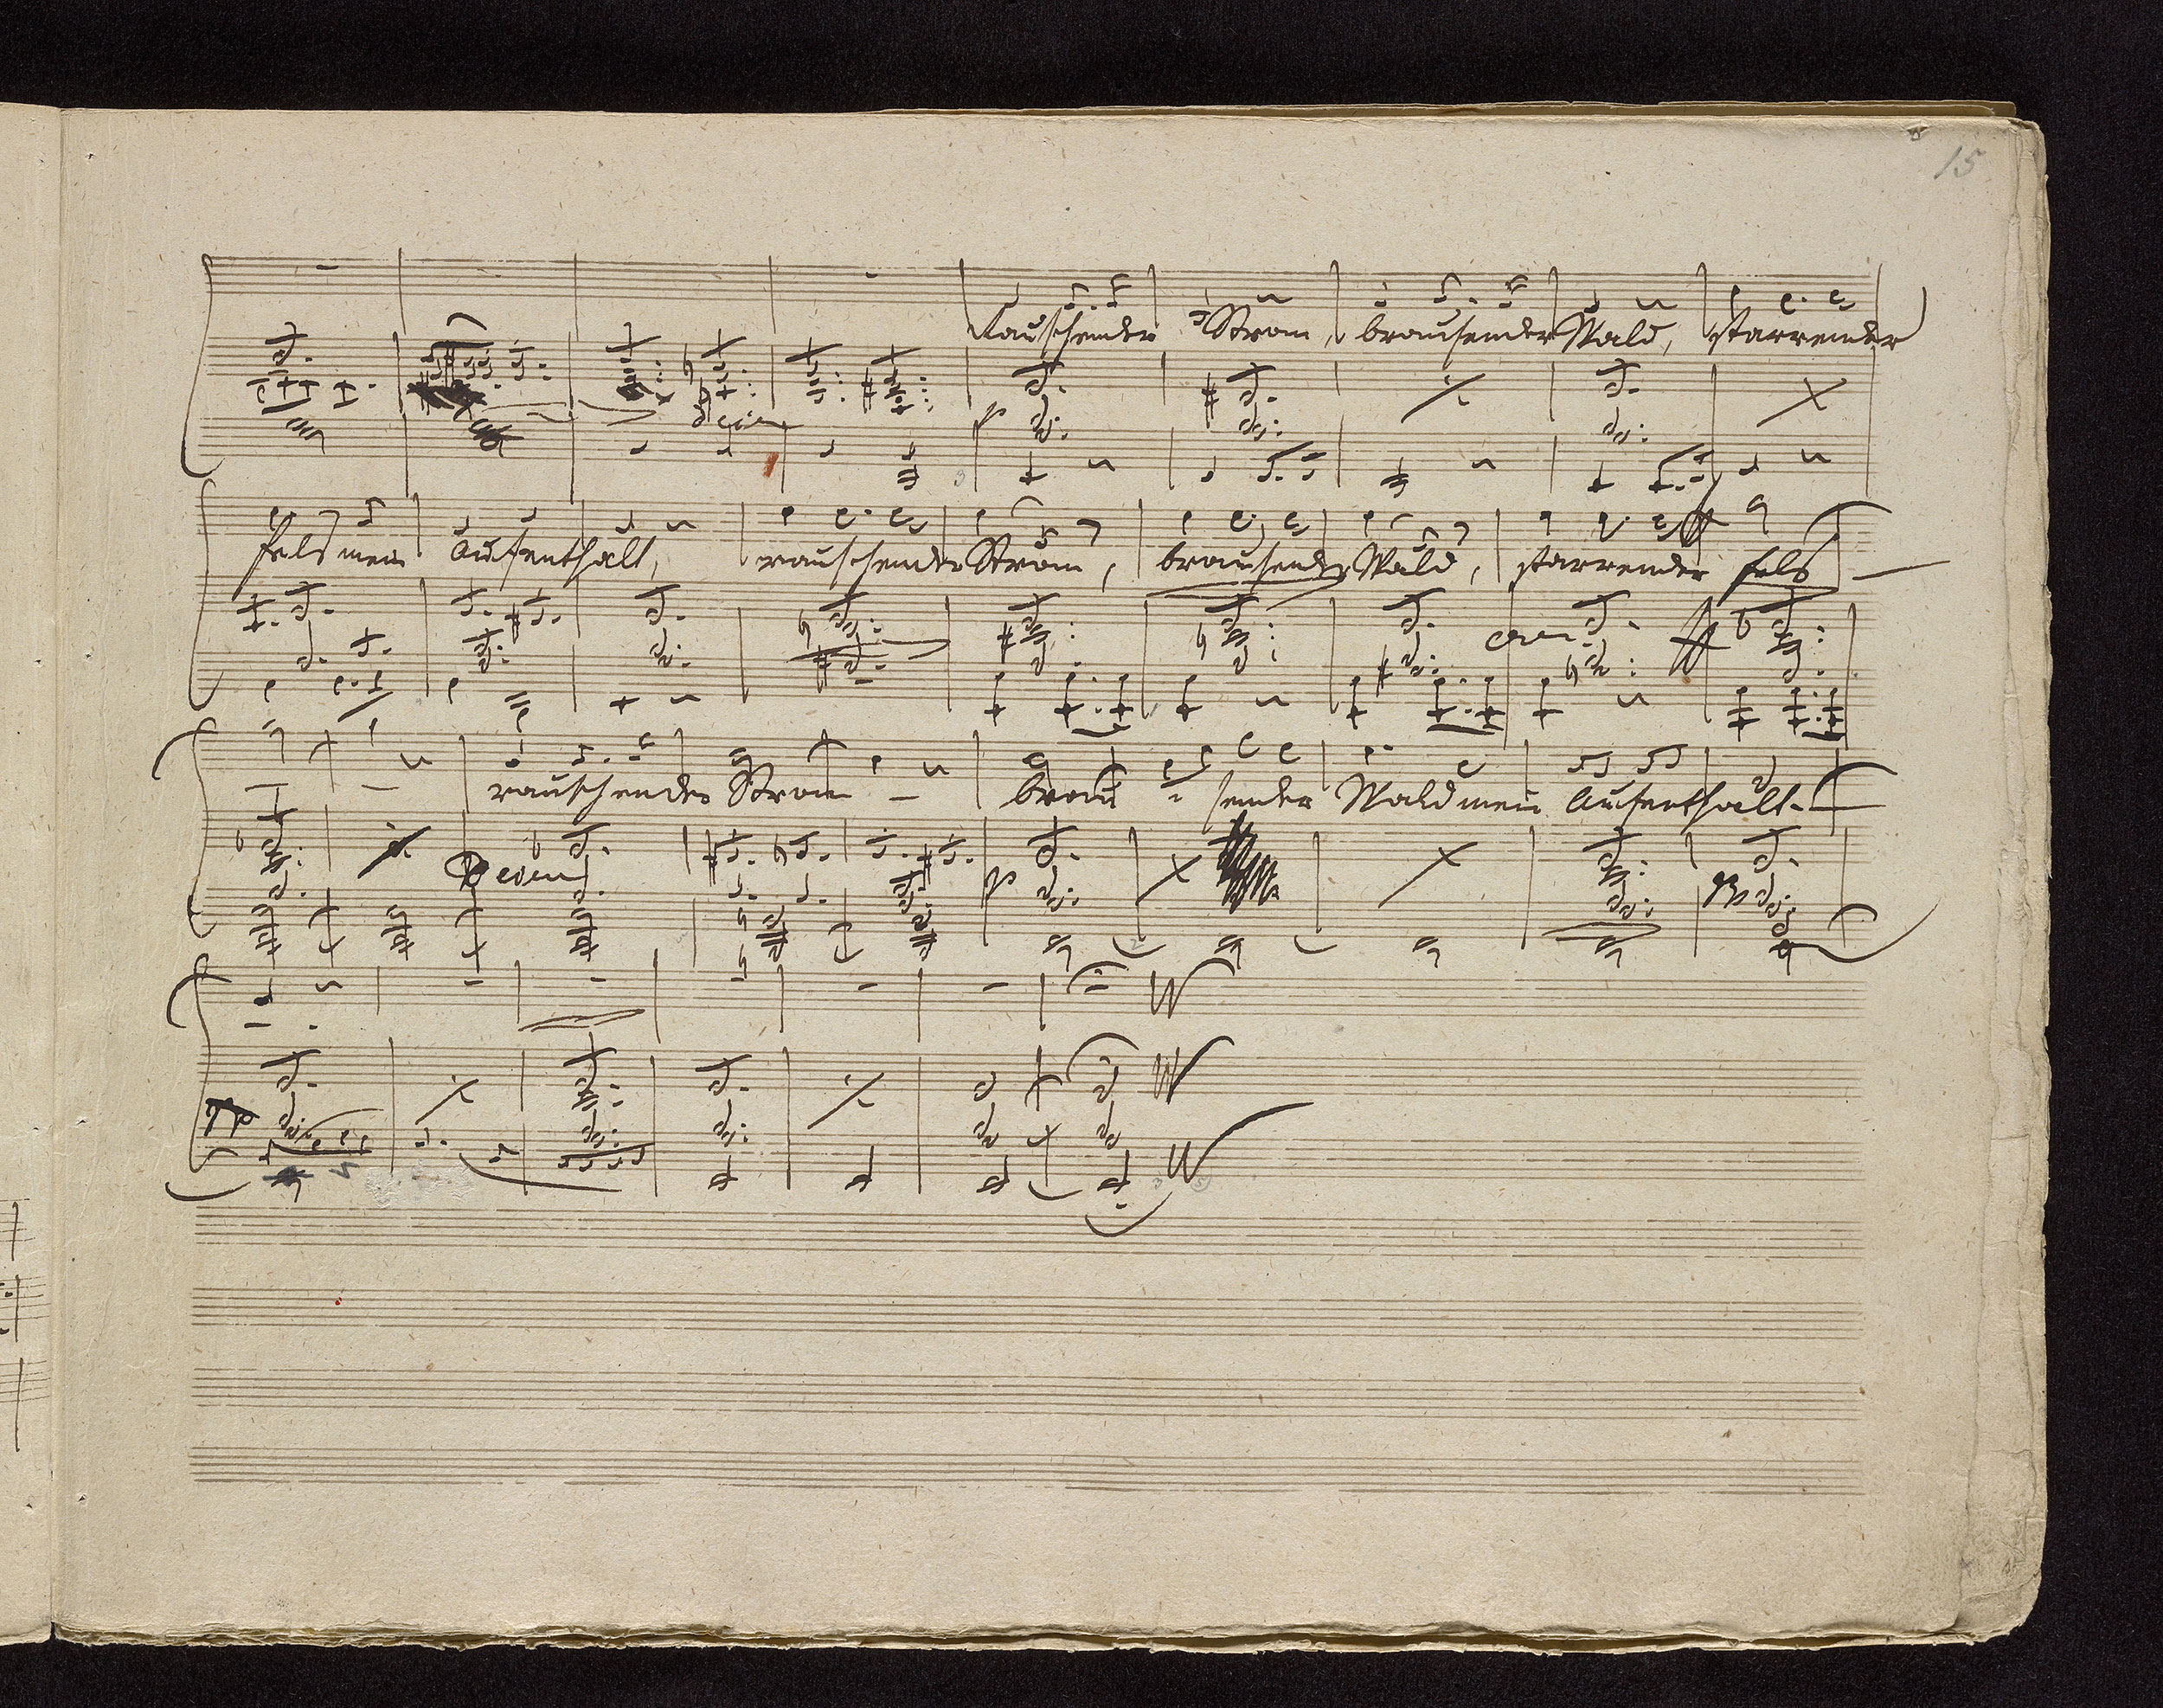 15
Rauschender Strom, brausender Wald, starrender
decresc
p
Fels mein Aufenthalt, rauschender Strom, brausender Wald, starrender Fels
cresc ff
rauschender Strom brausender Wald mein Aufenthalt.
Decresc p pp